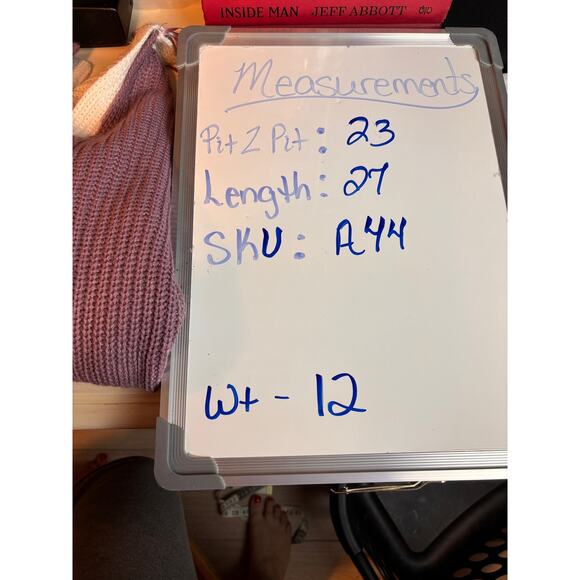 INSIDE MAN JEFF ABBOTT
Measurements
Pit 2 Pit: 23
Length: 27
SKU: A44
Wt - 12